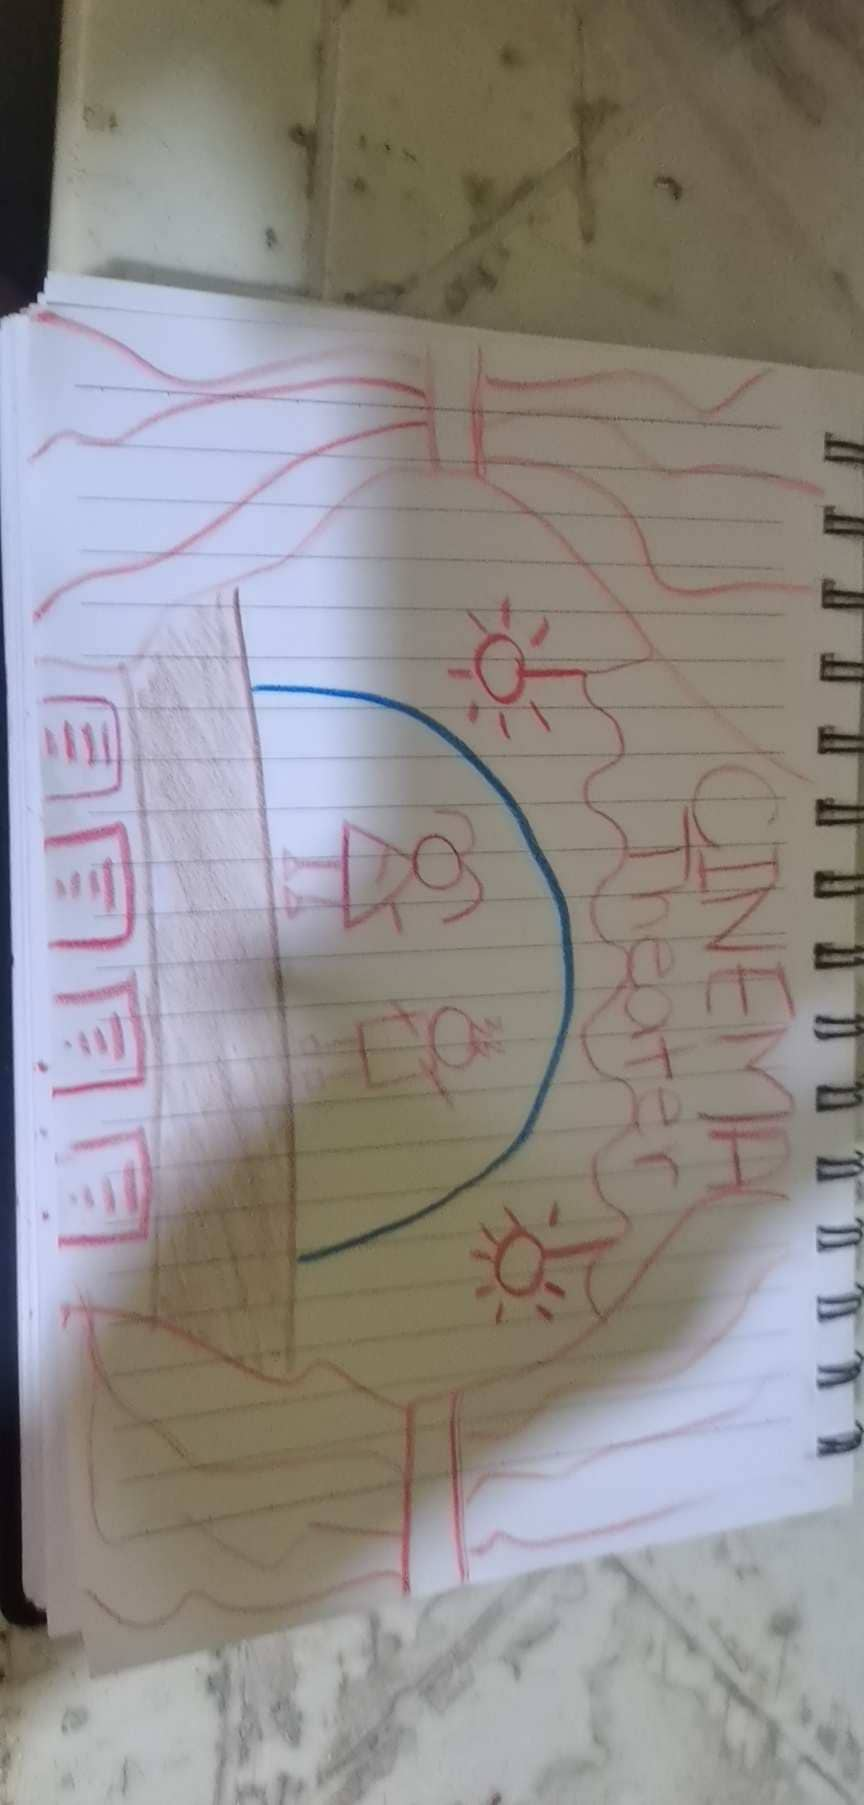 CINEMA
Theater